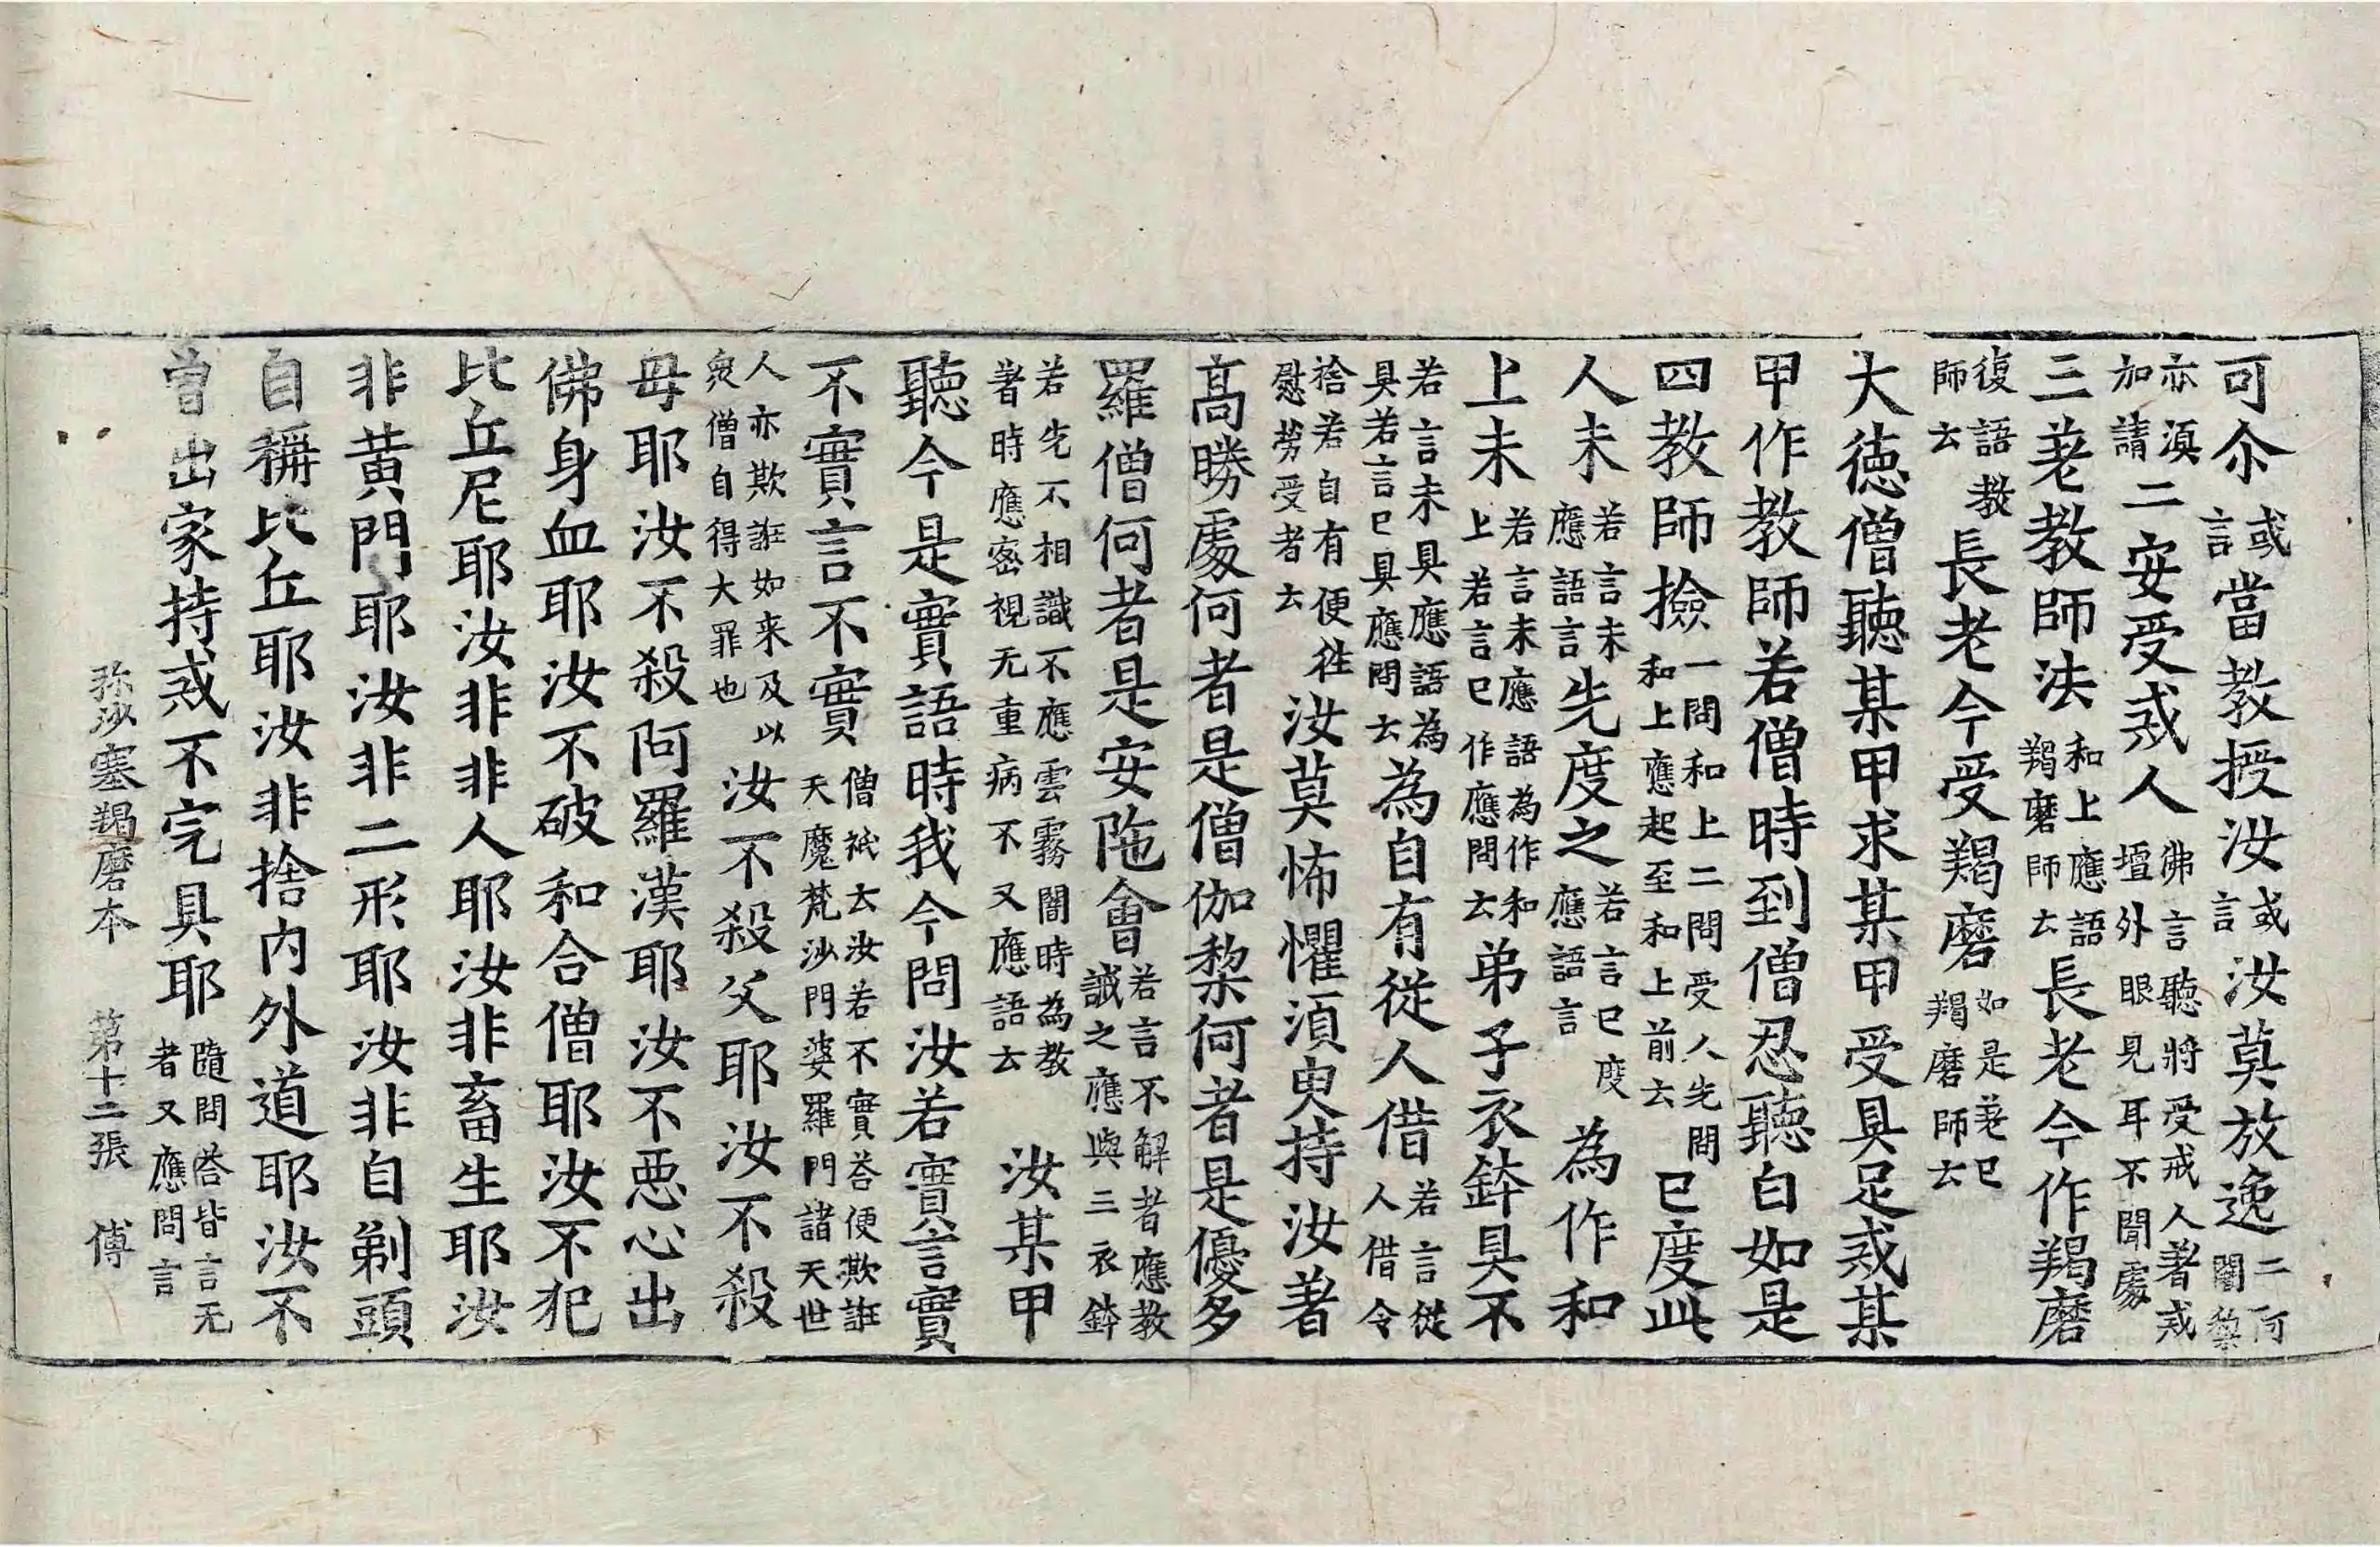 可尒或言當教授汝或言汝莫放逸二阿闍黎
亦湏加請二安受戒人佛言聽將受戒人著戒壇外眼見耳不聞處
三差教師法和上應語羯磨師去長老今作羯磨
復語教師去長老今受羯磨如是差已羯磨師去
大德僧聽某甲求某甲受具足戒某
甲作教師若僧時到僧忍聽白如是
四教師撿一問和上二問受人先問和上應起至和上前去已度此
人未若言未應語言先度之若言已度應語言為作和
上未若言未應語為作和上若言已作應問去弟子衣鉢具不
若言未具應語為具若言已具應問去為自有從人借若言從人借令
捨若自有便往慰勞受者去汝莫怖懼湏臾持汝著
高勝處何者是僧伽梨何者是優多
羅僧何者是安陁會若言不解者應教誡之應與三衣鉢
若先不相識不應雲霧闇時為教著時應密視无重病不又應語去汝某甲
聽今是實語時我今問汝若實言實
不實言不實僧祇去汝若不實荅便欺誑天魔梵沙門婆羅門諸天世
人亦欺誑如来及以衆僧自得大罪也汝不殺父耶汝不殺
母耶汝不殺阿羅漢耶汝不惡心出
佛身血耶汝不破和合僧耶汝不犯
比丘尼耶汝非非人耶汝非畜生耶汝
非黃門耶汝非二形耶汝非自剃頭
自稱比丘耶汝非捨內外道耶汝不
曾出家持戒不完具耶隨問荅皆言无者又應問言
弥沙塞羯磨本 第十二張 傅